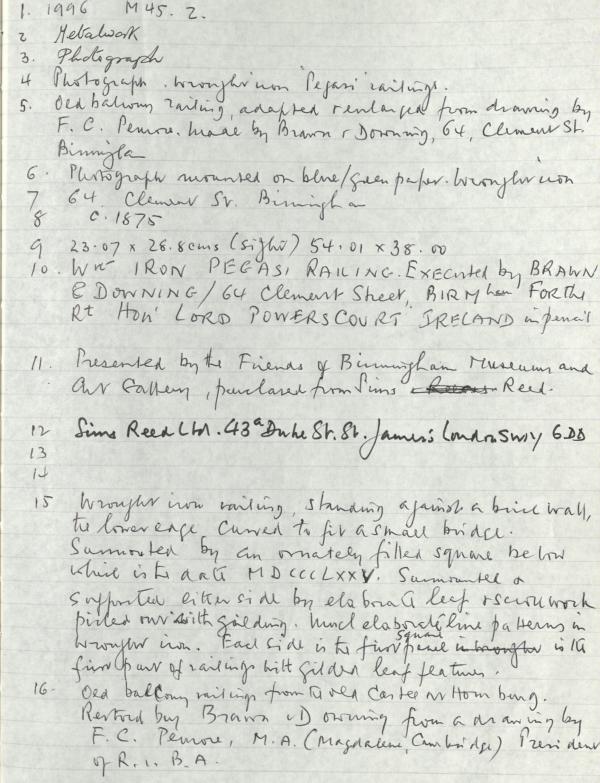 1. 1996 M 45. 2.
2 Metalwork
3. Photograph
4 Photograph. wrought iron 'Pegasi' railings.
5. Old balcony railing, adapted & enlarged from drawing by
F. C. Penrose. made by Brawn & Downing, 64, Clement St.
Birmingham
6. Photograph mounted on blue/green paper. Wrought iron
7 64. Clement St. Birmingham
8 c. 1875
9 23.07 x 28.8cms (sight) 54.01 x 38.00
10. Wrt IRON PEGASI RAILING. EXECUTED by BRAWN
& DOWNING / 64 Clement Street, BIRMham FOR the
Rt Hon' LORD POWERSCOURT IRELAND in pencil
11. Presented by the Friends of Birmingham Museums and
Art Gallery, purchased from Sims Reed.
12 Sims Reed Ltd. 43a Duke St. St. James's London SW1Y 6DD
13
14
15 Wrought iron railing, standing against a brick wall,
the lower edge curved to fit a small bridge.
Surmounted by an ornately filled square below
which is the date MDCCCLXXV. Surmounted &
supported either side by elaborate leaf & scrollwork
picked out with gilding. Much elaborate line patterns in
wrought iron. Each side is the first square panel in wrought is the
first part of railings with gilded leaf features.
16. Old balcony railings from the old Castle at Homburg.
Restored by Brawn & Downing from a drawing by
F. C. Penrose, M.A. (Magdalene, Cambridge) President
of R.I.B.A.